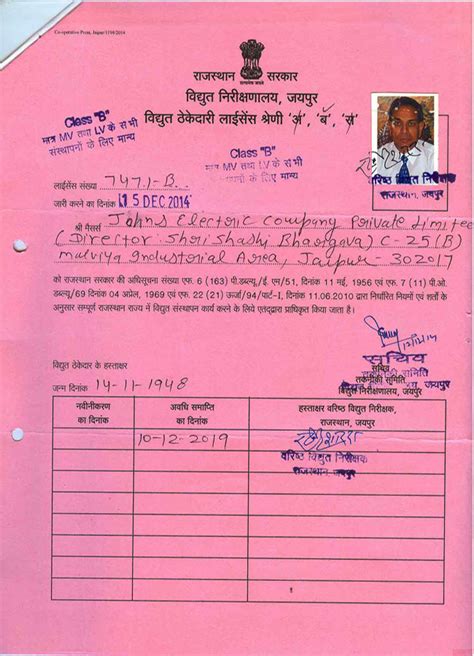 Co-operative Press, Jaipur/
राजस्थान सरकार
विद्युत निरीक्षणालय, जयपुर
विद्युत ठेकेदारी लाईसेंस श्रेणी 'अ', 'ब', 'स'
Class "B"
मात्र MV तथा LV के सभी
संस्थापनों के लिए मान्य
Class "B"
मात्र MV तथा LV के सभी
संस्थापनों के लिए मान्य
वरिष्ठ विद्युत निरीक्षक
राजस्थान, जयपुर
लाईसेंस संख्या 7471-B
जारी करने का दिनांक 15 DEC 2014
श्री मैसर्स Johns Electric Company Private Limited
(Director Shri Shashi Bhargava) C-25(B)
malviya Industorial Area, Jaipur-302017
को राजस्थान सरकार की अधिसूचना संख्या एफ. 6 (163) पी.डब्ल्यू./एम/51, दिनांक 11 मई, 1956 एवं एफ. 7 (11) पी.ओ.
डब्ल्यू/69 दिनांक 04 अप्रेल, 1969 एवं एफ. 22 (21) ऊर्जा/94/पार्ट-I, दिनांक 11.06.2010 द्वारा निर्धारित नियमों एवं शर्तों के
अनुसार सम्पूर्ण राजस्थान राज्य में विद्युत संस्थापन कार्य करने के लिए एतद्द्वारा प्राधिकृत किया जाता है।
सचिव
विद्युत ठेकेदार के हस्ताक्षर
सचिव
तकनीकी समिति
जन्म दिनांक 14-11-1948
विद्युत निरीक्षणालय, जयपुर
नवीनीकरण का दिनांक
अवधि समाप्ति का दिनांक
हस्ताक्षर वरिष्ठ विद्युत निरीक्षक, राजस्थान, जयपुर
10-12-2019
वरिष्ठ विद्युत निरीक्षक
राजस्थान, जयपुर